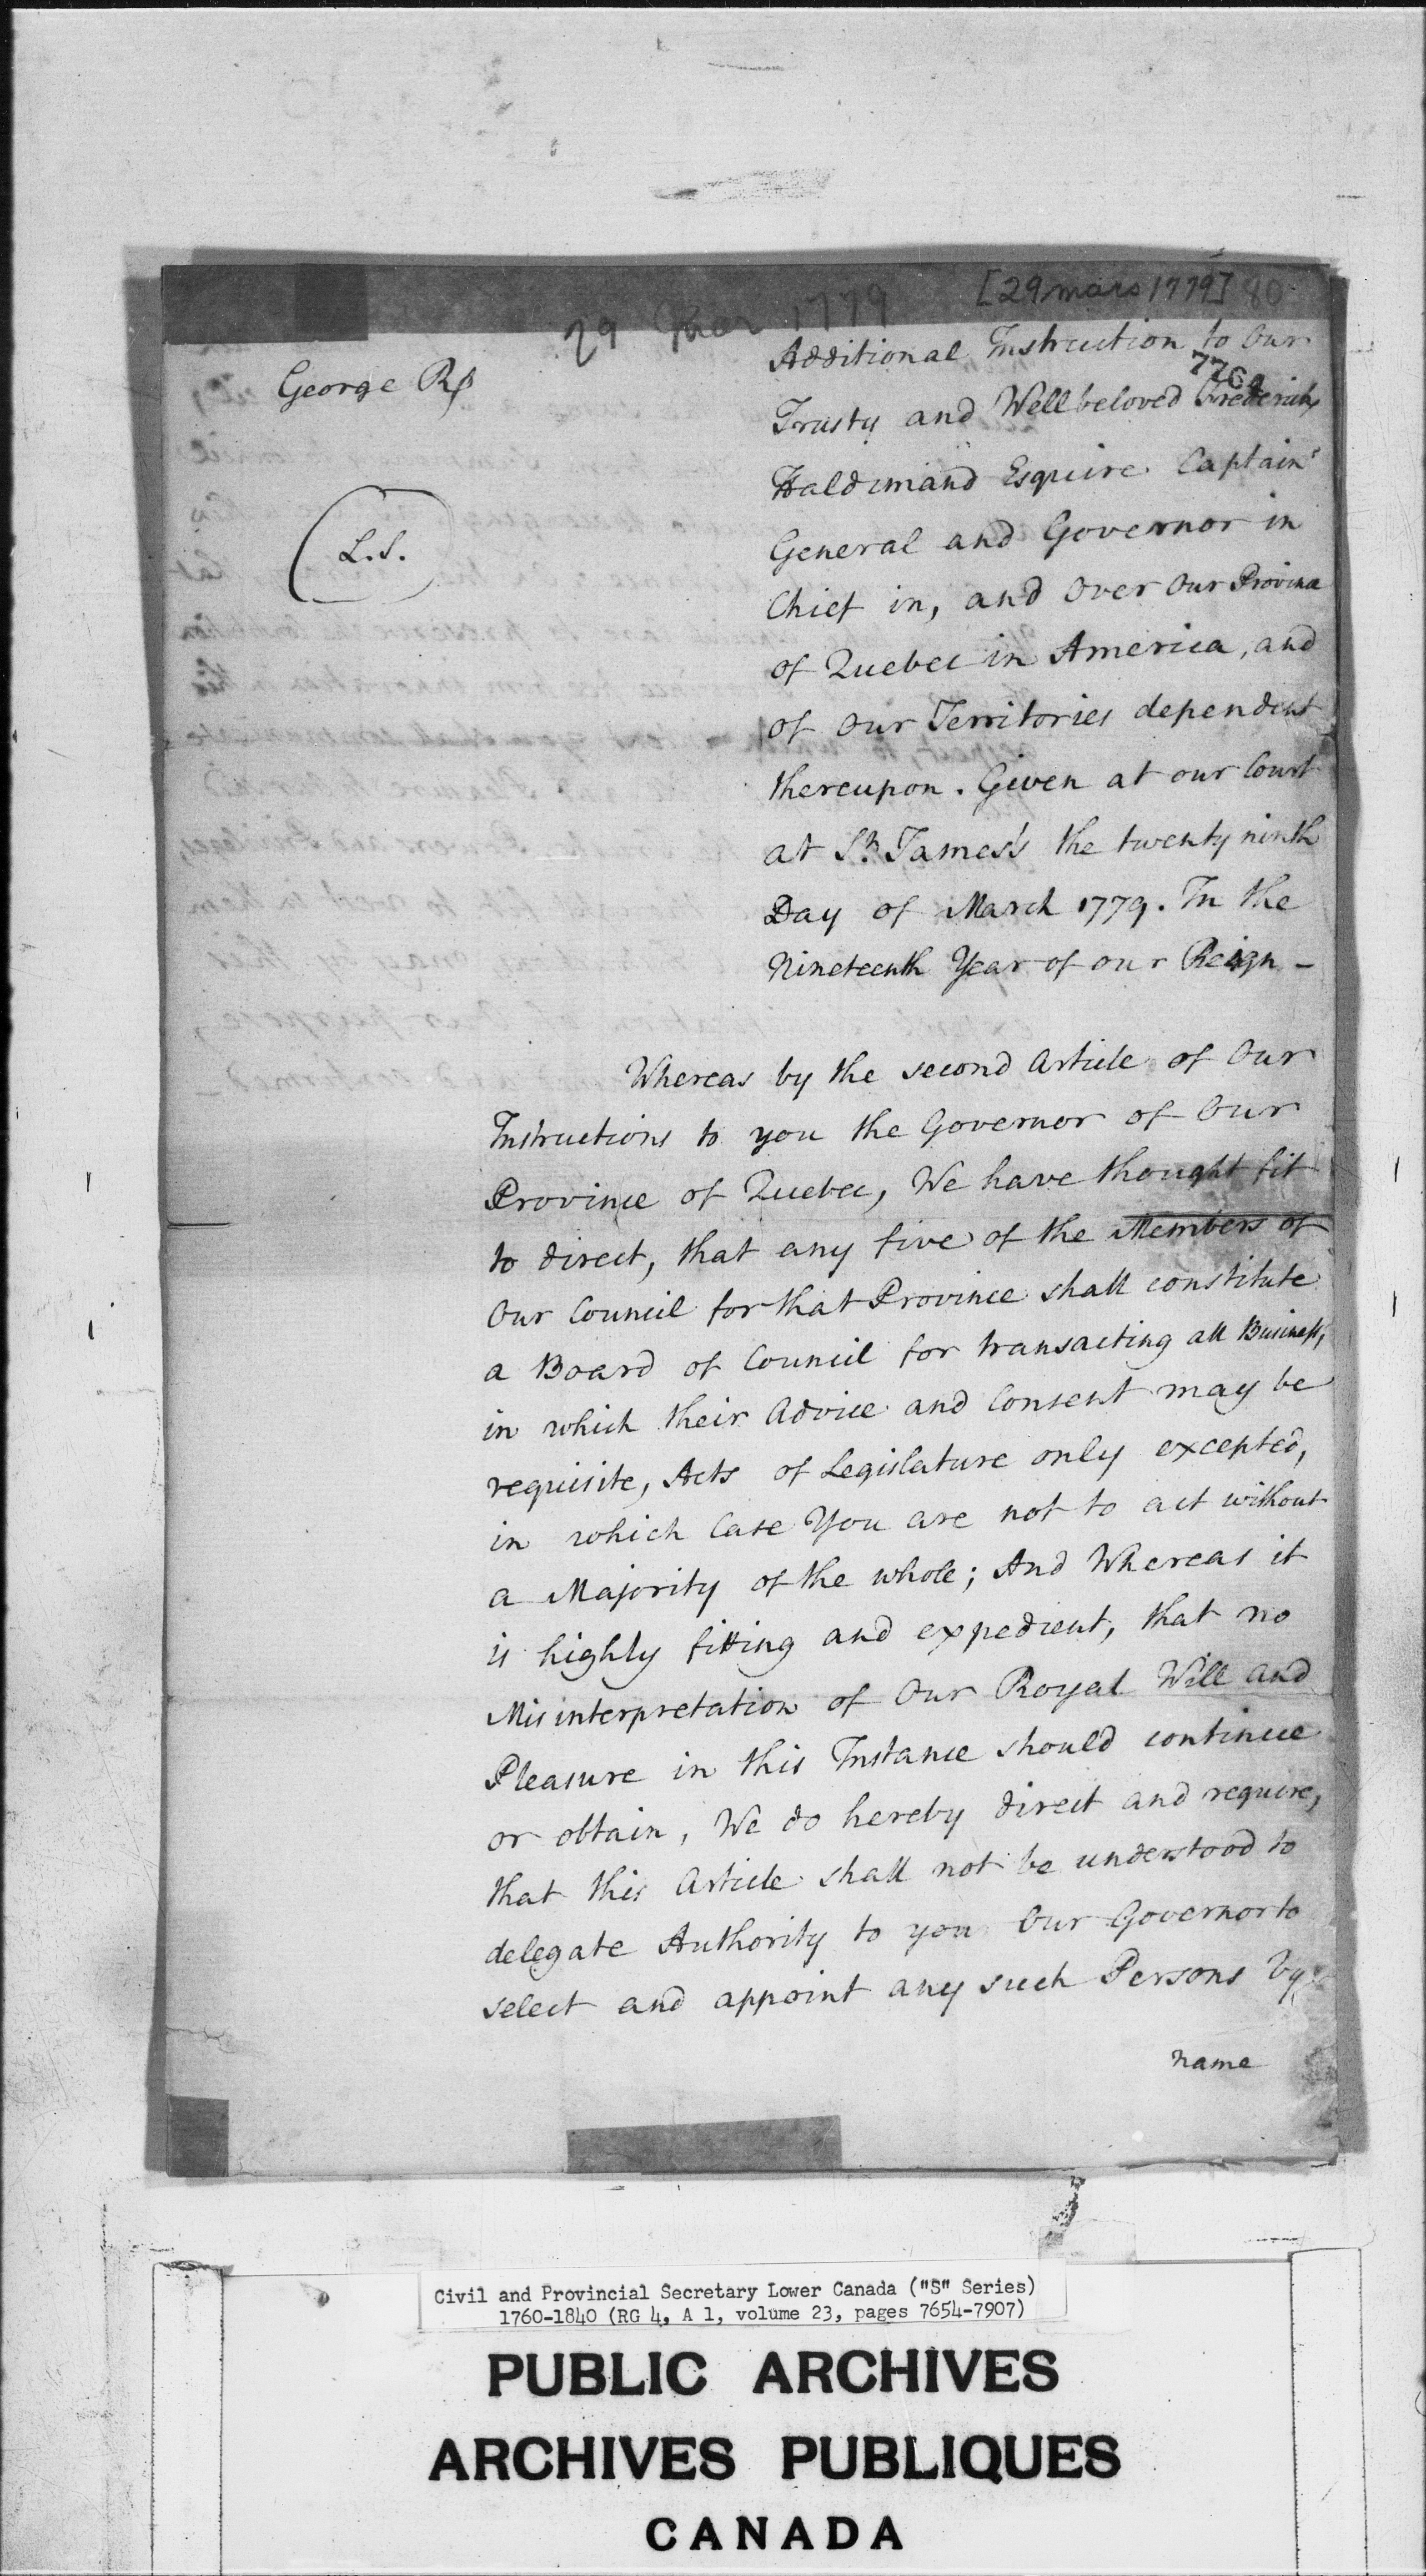 [29 mars 1779] 80
29 Mar 1779
George R
L.S.
Additional Instruction to Our
776
Trusty and Wellbeloved Frederick
Haldimand Esquire Captain
General and Governor in
Chief in, and Over Our Province
of Quebec in America, and
of Our Territories dependent
thereupon. Given at our Court
at St. James's the twenty ninth
Day of March 1779. In the
Nineteenth Year of our Reign -
Whereas by the second Article of Our
Instructions to you the Governor of Our
Province of Quebec, We have thought fit
to direct, that any five of the Members of
Our Council for that Province shall constitute
a Board of Council for transacting all Business,
in which their Advice and Consent may be
requisite, Acts of Legislature only excepted,
in which Case You are not to act without
a Majority of the whole; And Whereas it
is highly fitting and expedient, that no
Misinterpretation of Our Royal Will and
Pleasure in this Instance should continue
or obtain, We do hereby direct and require,
that this Article shall not be understood to
delegate Authority to you Our Governor to
select and appoint any such Persons by
name
Civil and Provincial Secretary Lower Canada ("S" Series)
1760-1840 (RG 4, A 1, volume 23, pages 7654-7907)
PUBLIC ARCHIVES
ARCHIVES PUBLIQUES
CANADA